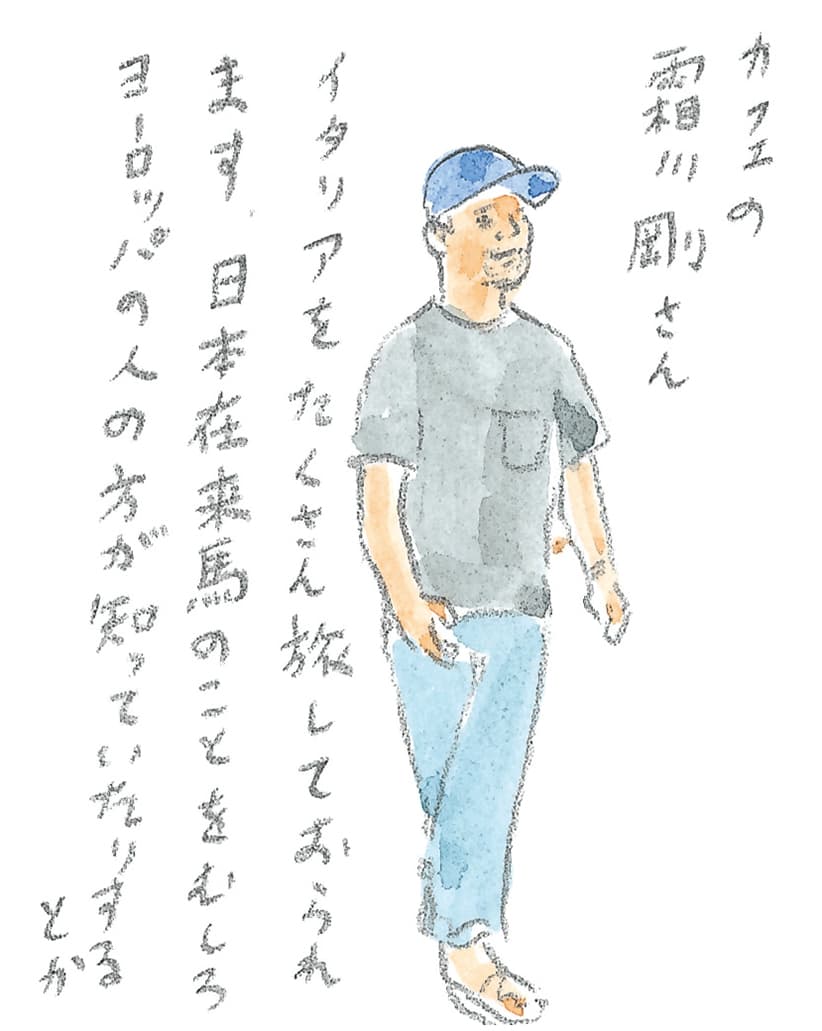 カフェの
霜川剛さん
イタリアをたくさん旅しておられ
ます。日本在来馬のことをむしろ
ヨーロッパの人の方が知っていたりする
とか